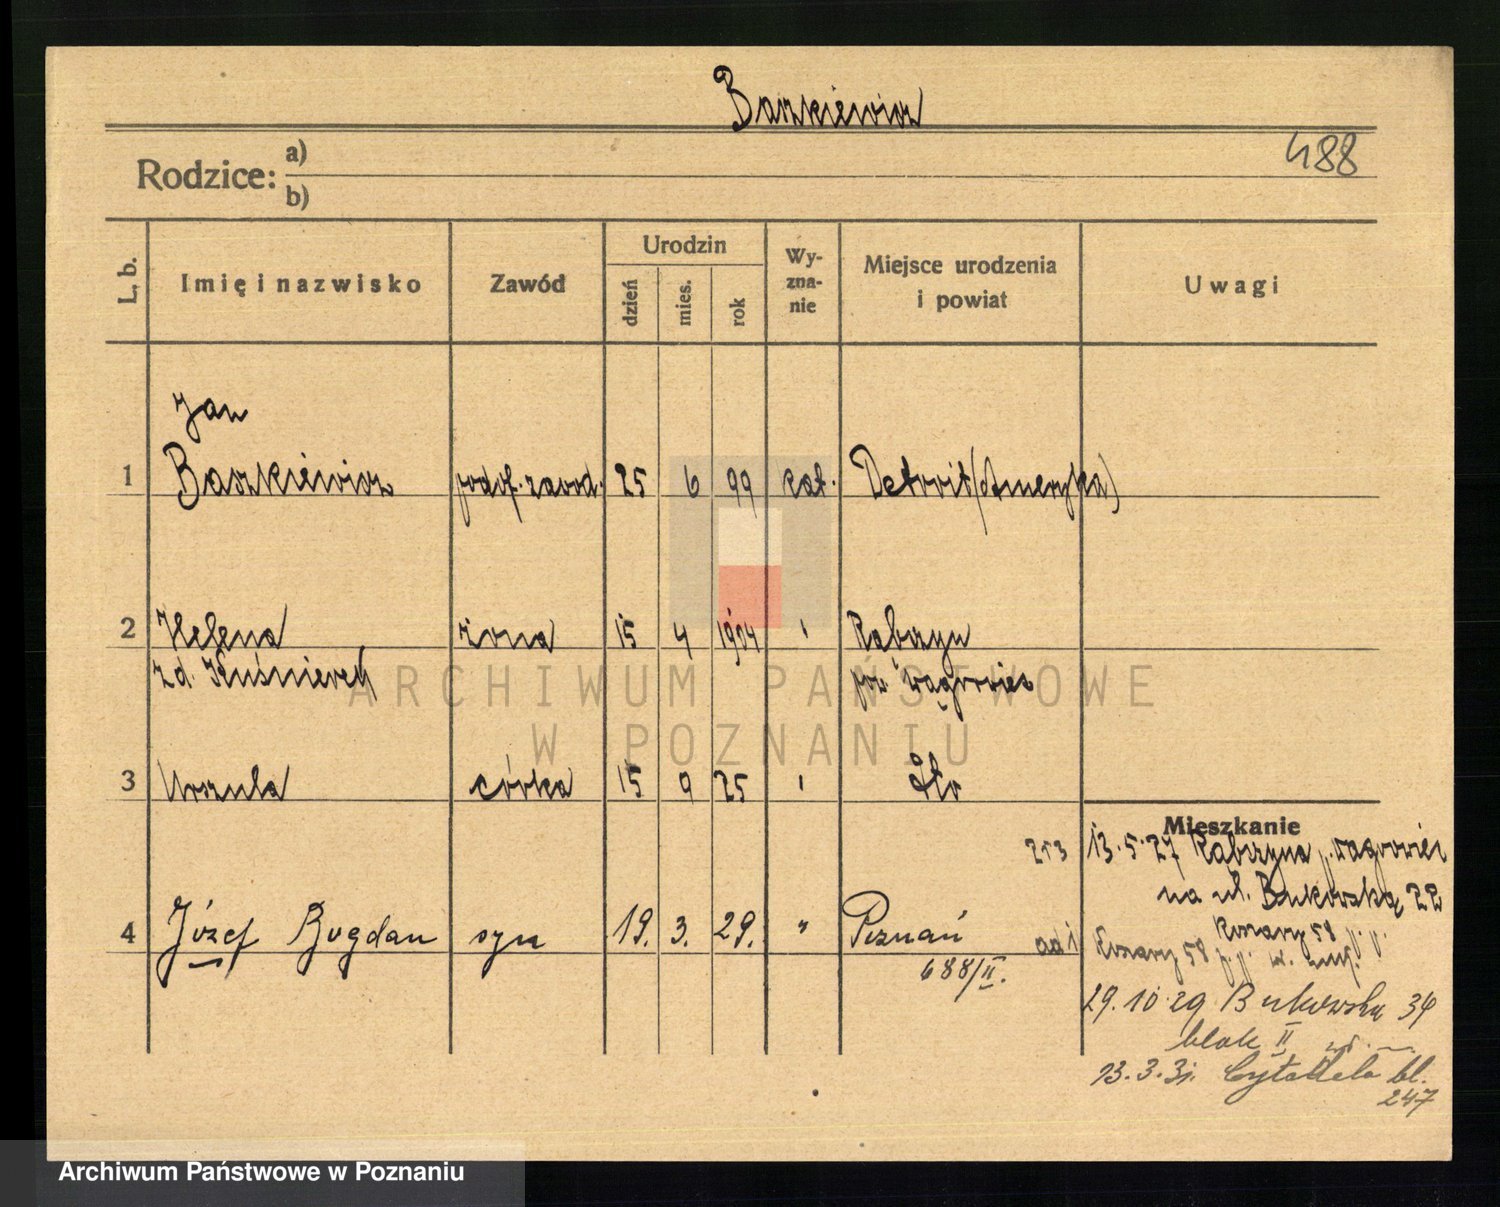 Baszkiewicz
488
Rodzice: a)
b)
L. b.
Imię i nazwisko
Zawód
Urodzin
dzień
mies.
rok
Wy-
zna-
nie
Miejsce urodzenia
i powiat
Uwagi
Jan
1 Baszkiewicz podof. zawod. 25 6 99 kat. Detroit (Ameryka)
2 Helena żona 15 4 1904 " Rąbczyn
zd. Kuśnierek pow wągrowiec
3 Urszula córka 15 9 25 "
Mieszkanie
13.5.27 Rąbczyna p. wągrowiec
na ul. Bukowską 22
4 Józef Bogdan syn 19. 3. 29. " Poznań
ad 1 Koszary 58
Koszary 58 p.p.
688/II.
29.10.29 Bukowska 34
blok II
13.3.31. Cytadela bl.
247
ARCHIWUM PAŃSTWOWE
W POZNANIU
Archiwum Państwowe w Poznaniu